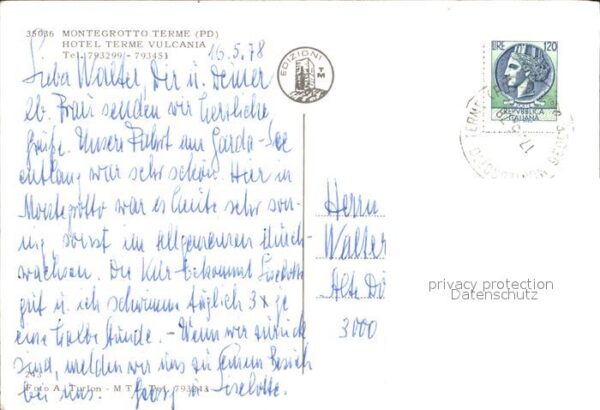 35036 MONTEGROTTO TERME (PD)
HOTEL TERME VULCANIA
Tel. 793299 - 793451
16.5.78
EDIZIONI
TM
LIRE 120
REPVBBLICA
ITALIANA
Lieber Walter, Dir u. Deiner
lb. Frau senden wir herzliche
Grüße. Unsere Fahrt am Garda-See
entlang war sehr schön. Hier in
Montegrotto war es heute sehr son-
nig, sonst im allgemeinen durch-
wachsen. Die Kur bekommt Liselotte
gut u. ich schwimme täglich 3x je
eine halbe Stunde. - Wenn wir zurück
sind, melden wir uns zu Eurem Besuch
bei uns. Georg u. Liselotte.
Herrn
Walter
Alte Dö
3000
privacy protection
Datenschutz
243
Foto A. Turlon - M T Tel. 793243